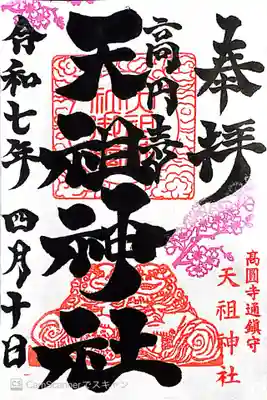 奉拝
高円寺
天祖神社
令和七年 四月十日
高圓寺通鎮守
天祖神社
CamScannerでスキャン